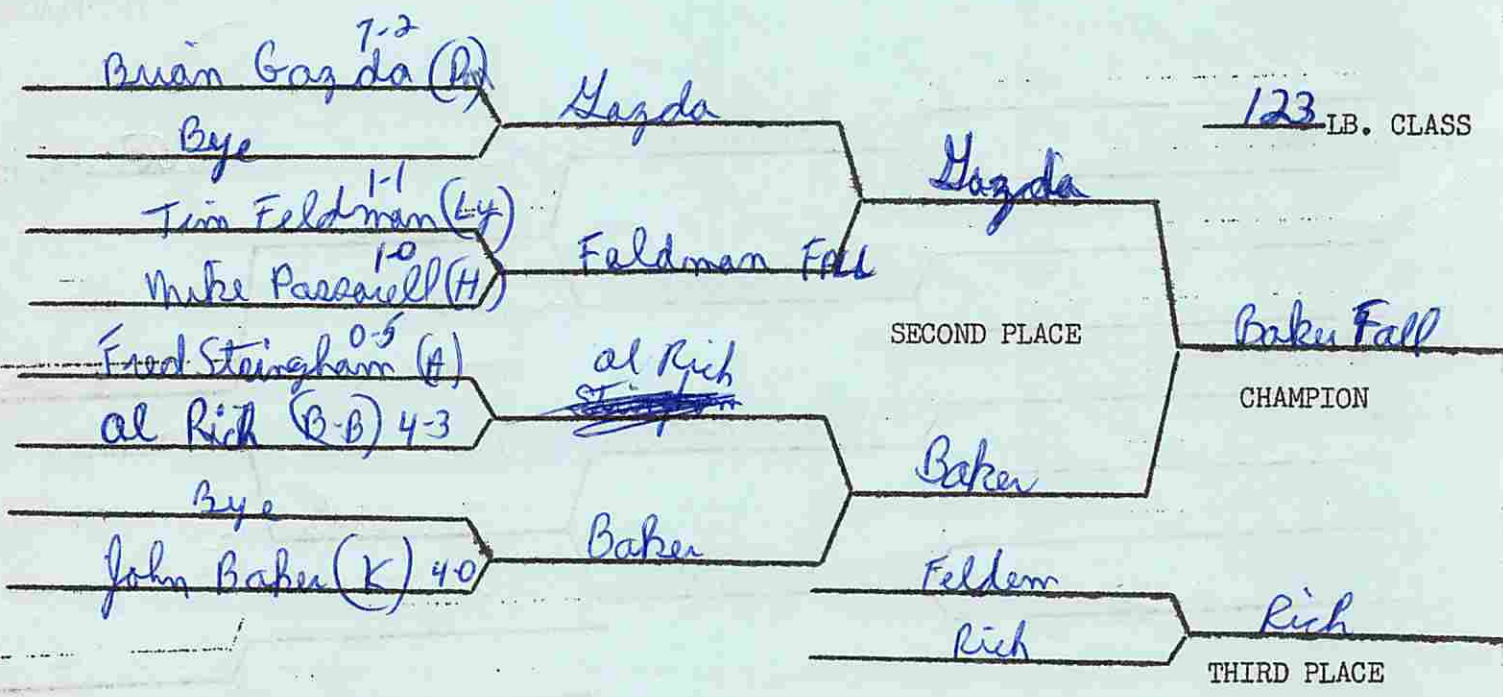 7-2
Brian Gazda
Bye
1-1
Tim Feldman (Ly)
1-0
Mike Passarell (H)
0-5
Fred Steingham (A)
Al Rich (B-B) 4-3
Bye
John Baker (K) 4-0
Gazda
Feldman Fall
Al Rich
Baker
Gazda
SECOND PLACE
Baker
123 LB. CLASS
Baker Fall
CHAMPION
Feldem
Rich
Rich
THIRD PLACE